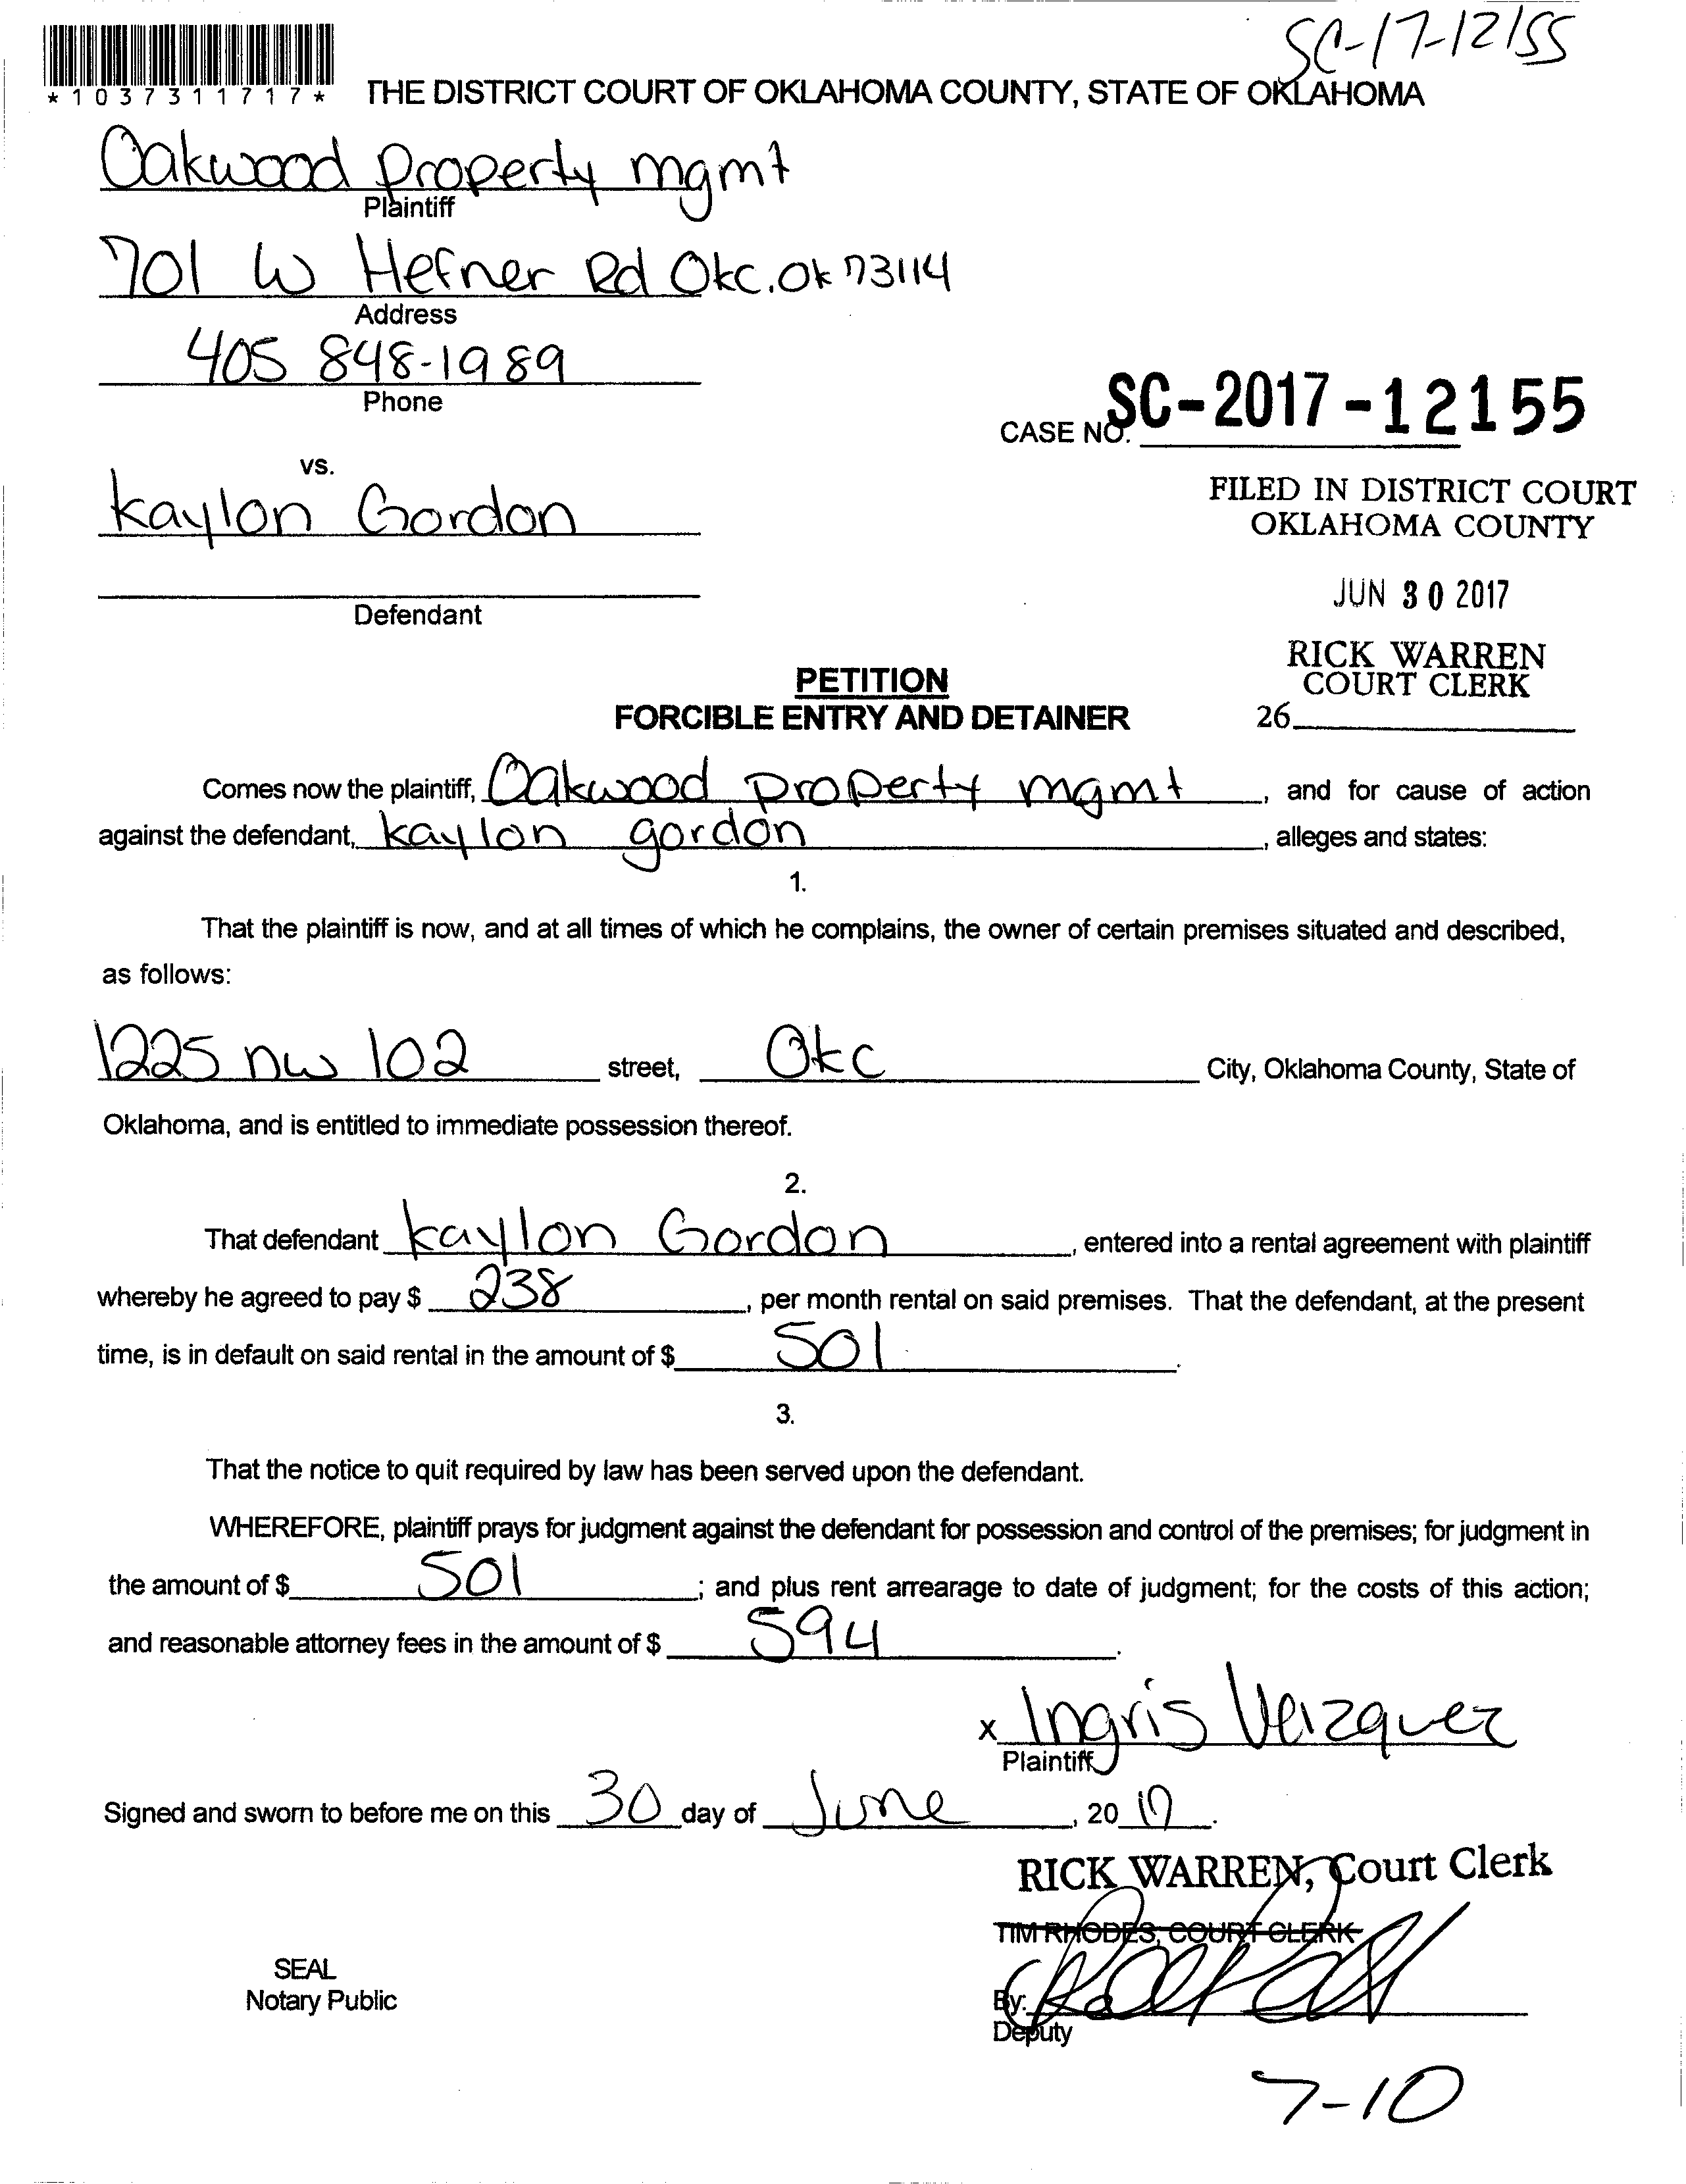 SC-17-12155
*1037311717*
THE DISTRICT COURT OF OKLAHOMA COUNTY, STATE OF OKLAHOMA
Oakwood property mgmt
Plaintiff
701 W Hefner Rd Okc. Ok 73114
Address
405 848-1989
Phone
CASE NO. SC-2017-12155
vs.
FILED IN DISTRICT COURT
OKLAHOMA COUNTY
kaylon Gordon
JUN 30 2017
Defendant
RICK WARREN
COURT CLERK
26
PETITION
FORCIBLE ENTRY AND DETAINER
Comes now the plaintiff, Oakwood property mgmt, and for cause of action
against the defendant, kaylon gordon, alleges and states:
1.
That the plaintiff is now, and at all times of which he complains, the owner of certain premises situated and described,
as follows:
1225 nw 102 street, Okc City, Oklahoma County, State of
Oklahoma, and is entitled to immediate possession thereof.
2.
That defendant kaylon Gordon, entered into a rental agreement with plaintiff
whereby he agreed to pay $ 238, per month rental on said premises. That the defendant, at the present
time, is in default on said rental in the amount of $ 501.
3.
That the notice to quit required by law has been served upon the defendant.
WHEREFORE, plaintiff prays for judgment against the defendant for possession and control of the premises; for judgment in
the amount of $ 501; and plus rent arrearage to date of judgment; for the costs of this action;
and reasonable attorney fees in the amount of $ 594.
x Ingris Vazquez
Plaintiff
Signed and sworn to before me on this 30 day of June, 20 17.
RICK WARREN, Court Clerk
TIM RHODES, COURT CLERK
SEAL
Notary Public
By:
Deputy
7-10